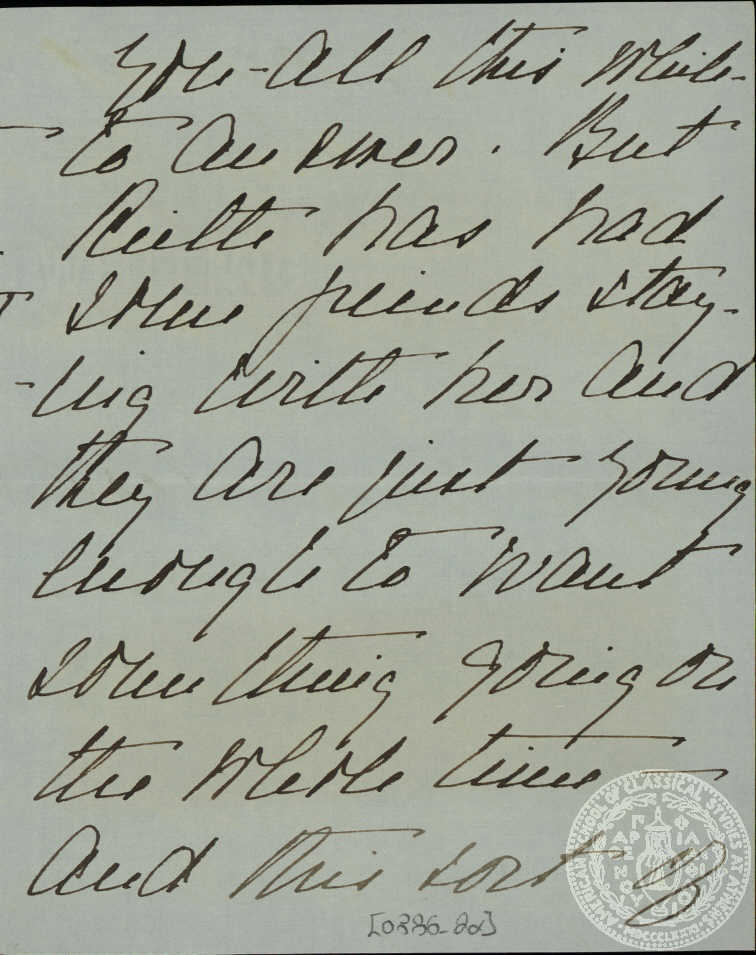 you - all this while -
to answer. But
has had
some friends stay-
-ing with her and
they are just young
enough to want
something going on
the whole time -
and this sort of
[0386-22]
AMERICAN SCHOOL OF CLASSICAL STUDIES AT ATHENS
ΠΑΡΘΕΝΟΥ ΦΙΛΑΙ
MDCCCLXXXI